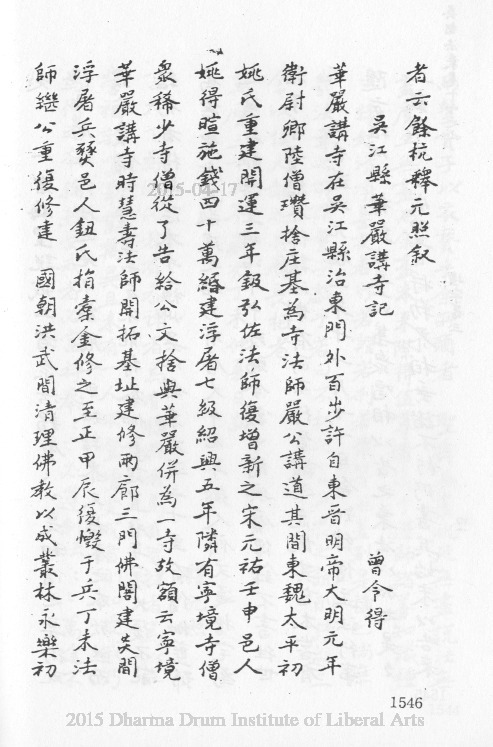 者云餘杭釋元照叙
吳江縣華嚴講寺記
曾令得
華嚴講寺在吳江縣治東門外百步許自東晉明帝大明元年
衛尉卿陸僧瓚捨庄基為寺法師嚴公講道其間東魏太平初
姚氏重建開運三年釼弘佐法師復增新之宋元祐壬申邑人
姚得暄施錢四十萬緡建浮屠七級紹興五年隣有寧境寺僧
衆稀少寺僧從了告給公文捨與華嚴併為一寺故額云寧境
華嚴講寺時慧壽法師開拓基址建修兩廊三門佛閣建炎間
浮屠兵燹邑人鈕氏捐橐金修之至正甲辰復燬于兵丁未法
師繼公重復修建 國朝洪武間清理佛教以成叢林永樂初
1546
2015-04-17
2015 Dharma Drum Institute of Liberal Arts